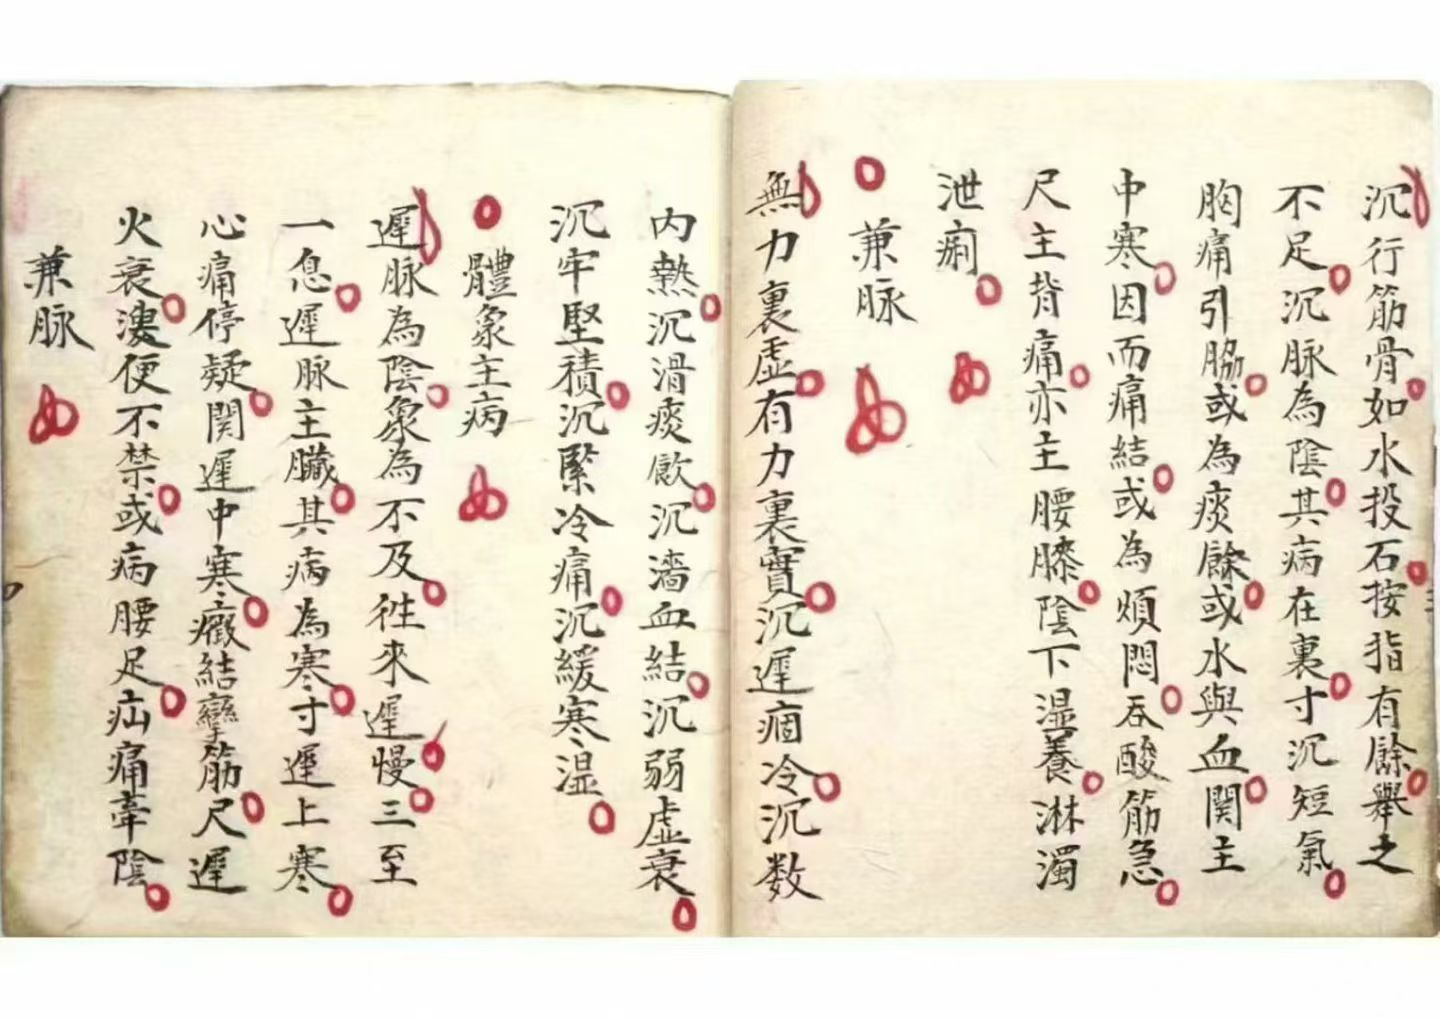 沉行筋骨如水投石按指有餘舉之
不足沉脉為陰其病在裏寸沉短氣
胸痛引脇或為痰餘或水與血関主
中寒因而痛結或為煩悶吞酸筋急
尺主背痛亦主腰膝陰下湿養淋濁
泄痢
兼脉
無力裏虛有力裏實沉遲痼冷沉数
内熱沉滑痰飲沉濇血結沉弱虛衰
沉牢堅積沉緊冷痛沉緩寒湿
體象主病
遲脉為陰象為不及徃來遲慢三至
一息遲脉主臟其病為寒寸遲上寒
心痛停疑関遲中寒癥結攣筋尺遲
火衰溲便不禁或病腰足疝痛牽陰
兼脉